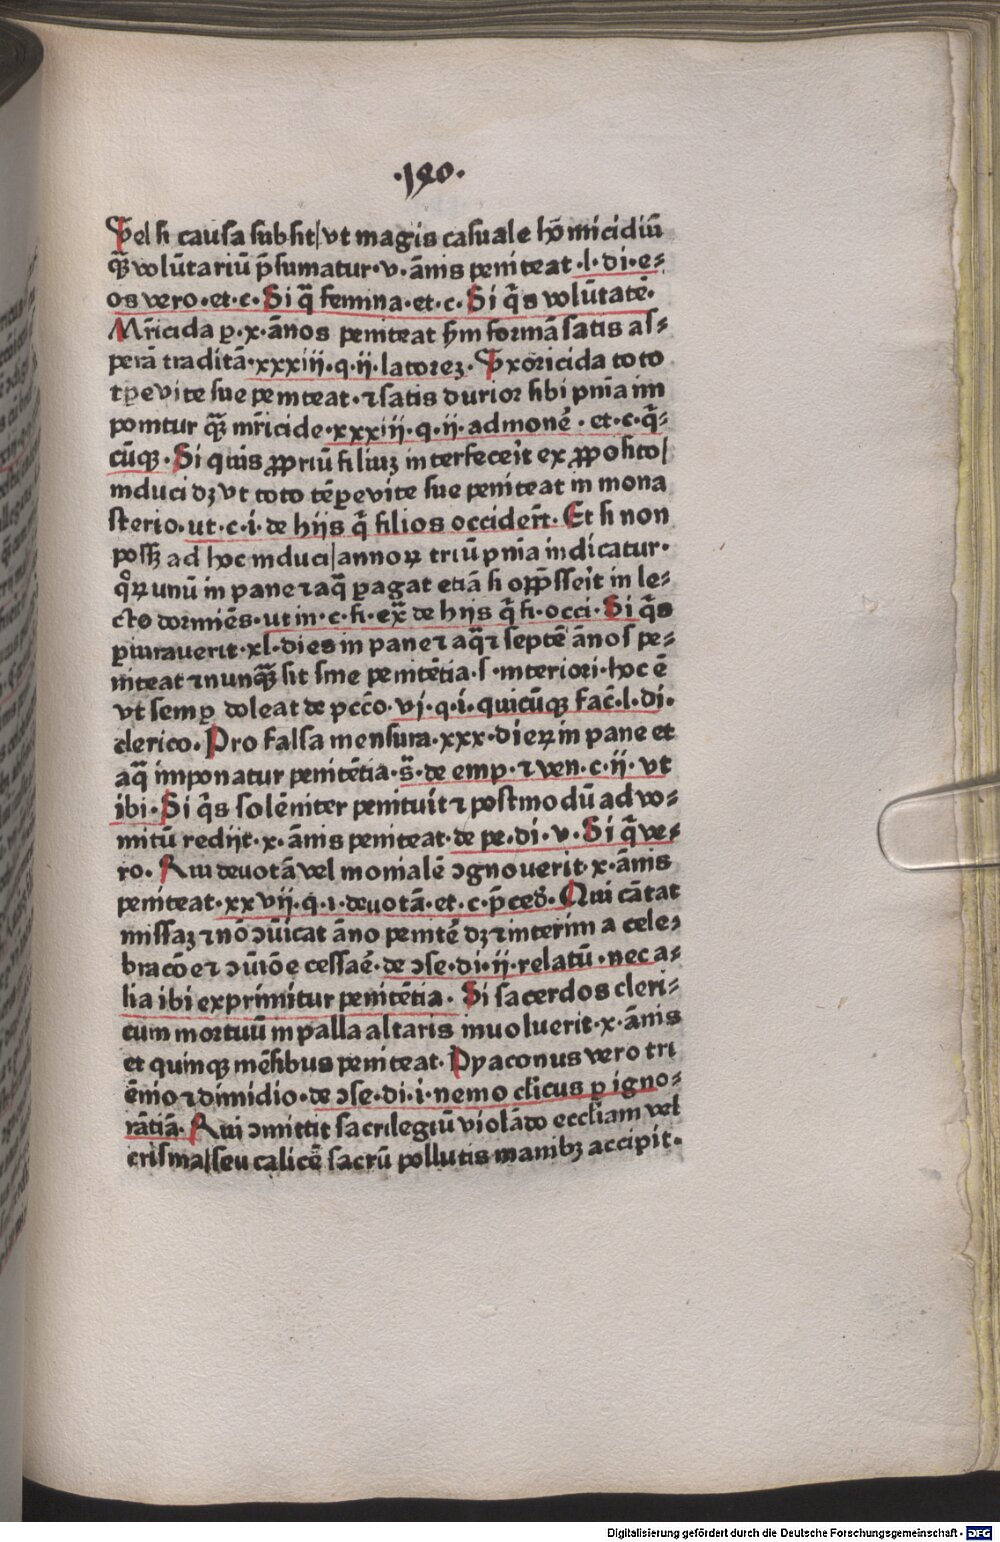 ·190·
Vel si causa subsit/ vt magis casuale hōmicidiū
q̄ȝ volūtariū p̄sumatur·v·ānis peniteat·l·di·e⸗
os vero·et·c·Si q̄ femina·et·c·Si q̄s volūtate·
Mr̄icida ꝑ·x·ānos peniteat s̄m formā satis as⸗
perā traditā·xxxiij·q·ij·latorez·Vxoricida toto
tꝑe vite sue peniteat·⁊ satis durior sibi pn̄ia im
ponitur q̄ȝ mr̄icide·xxxiij·q·ij·admone·et·c·q̄⸗
cūqꝫ·Si quis ꝓpriū filiuȝ interfecerit ex ꝓposito/
induci dȝ vt toto tēꝑe vite sue peniteat in mona
sterio·ut·c·i·de hijs q̄ filios occider̄t·Et si non
possȝ ad hoc induci/ annoꝝ triū pn̄ia indicatur·
qͦꝝ unū in pane ⁊ aq̄ ꝑagat etiā si opp̄sserit in le⸗
cto dormiēs·ut in·c·fi·ex̄ de hijs q̄ fi·occi·Si q̄s
ꝑiurauerit·xl·dies in pane ⁊ aq̄ ⁊ septē ānos pe⸗
niteat ⁊ nunq̄ȝ sit sine penitētia·s·interiori·hoc ē
vt semꝑ doleat de pcc̄o·vj·q·i·quicūqꝫ fac̄·l·di·
clerico·Pro falsa mensura·xxx·dieꝝ in pane et
aq̄ imponatur penitētia·s̄·de emp·⁊ ven·c·ij·vt
ibi·Si q̄s solēniter penituit ⁊ postmodū ad vo⸗
mitū redijt·x·ānis peniteat·de pe·di·v·Si q̄ ve⸗
ro·Qui deuotā vel monialē ↄgnouerit·x·ānis
peniteat·xxvij·q·i·deuotā·et·c·p̄ced̄·Qui cātat
missaȝ ⁊ nō ↄūicat āno penitē dȝ ⁊ interim a cele⸗
bracōe ⁊ ↄūiōe cessaē·de ↄse·di·ij·relatū·nec a⸗
lia ibi exprimitur penitētia·Si sacerdos cleri⸗
cum mortuū in palla altaris inuoluerit·x·ānis
et quinqꝫ mēsibus peniteat·Dyaconus vero tri
ēnio ⁊ dimidio·de ↄse·di·i·nemo cl̄icus ꝑ igno⸗
rātiā·Qui ↄmittit sacrilegiū violādo eccl̄iam vel
crisma/ seu calicē sacrū pollutis manibȝ accipit·
Digitalisierung gefördert durch die Deutsche Forschungsgemeinschaft - DFG